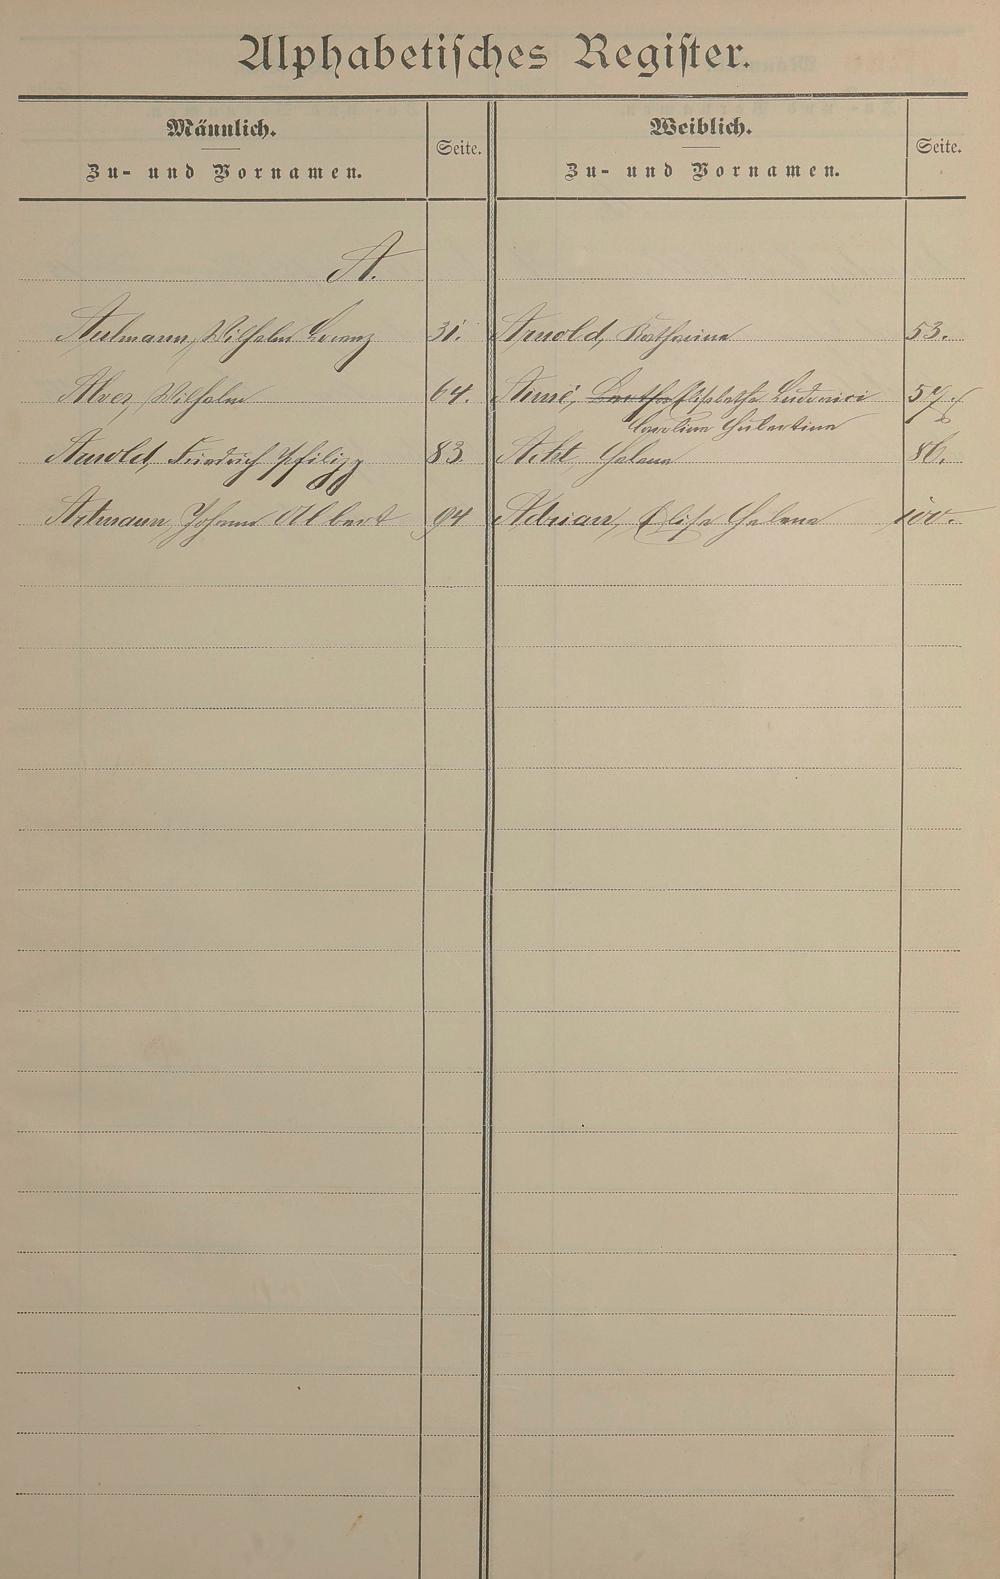 Alphabetisches Register.
Männlich.
Zu- und Vornamen.
Seite.
Weiblich.
Zu- und Vornamen.
Seite.
A.
Aulmann, Wilhelm Lorenz 31. Arnold, Katharina 53.
Alver, Wilhelm 64. Aumé, Bertha Elisabetha Ludovici 57.
Caroline Hubertine
Arnold, Friedrich Philipp 83 Acht, Helena 86.
Artmann, Johann Albert 94 Adrian, Elisa Helena 100.